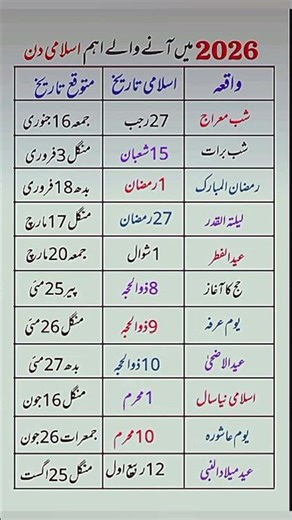 2026 میں آنے والے اہم اسلامی دن
واقعہ اسلامی تاریخ متوقع تاریخ
شب معراج 27 رجب جمعہ 16 جنوری
شب برات 15 شعبان منگل 3 فروری
رمضان المبارک 1 رمضان بدھ 18 فروری
لیلتہ القدر 27 رمضان منگل 17 مارچ
عید الفطر 1 شوال جمعہ 20 مارچ
حج کا آغاز 8 ذوالحجہ پیر 25 مئی
یوم عرفہ 9 ذوالحجہ منگل 26 مئی
عید الاضحیٰ 10 ذوالحجہ بدھ 27 مئی
اسلامی نیا سال 1 محرم منگل 16 جون
یوم عاشورہ 10 محرم جمعرات 26 جون
عید میلاد النبی 12 ربیع اول منگل 25 اگست